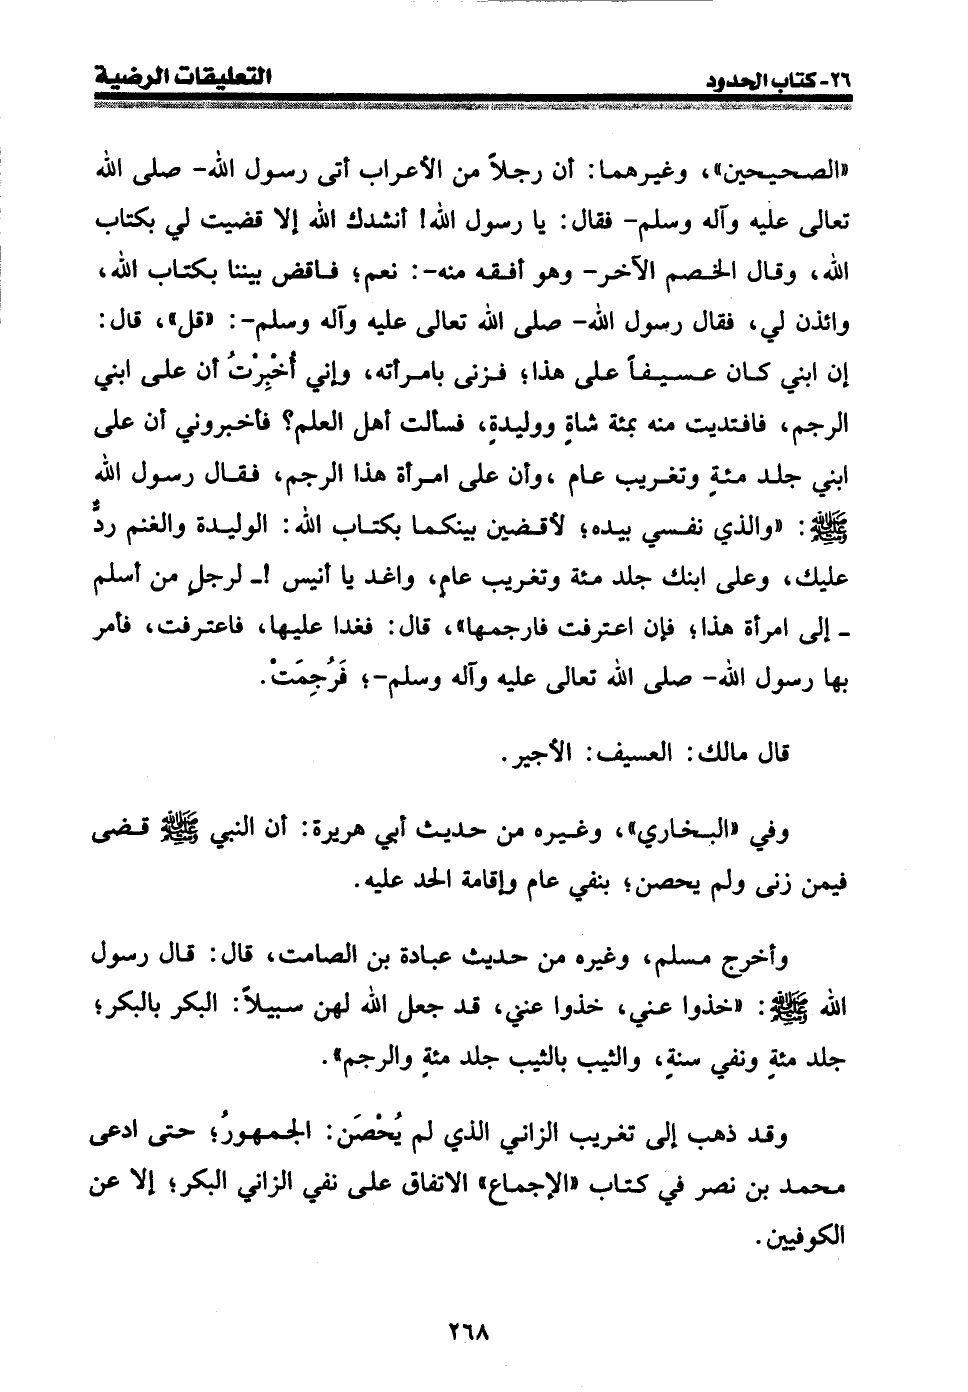 ٢٦- كتاب الحدود
التعليقات الرضية
«الصحيحين»، وغيرهما: أن رجلاً من الأعراب أتى رسول الله- صلى الله
تعالى عليه وآله وسلم- فقال: يا رسول الله! أنشدك الله إلا قضيت لي بكتاب
الله، وقال الخصم الآخر- وهو أفقه منه-: نعم؛ فاقض بيننا بكتاب الله،
وائذن لي، فقال رسول الله- صلى الله تعالى عليه وآله وسلم-: «قل»، قال:
إن ابني كان عسيفاً على هذا؛ فزنى بامرأته، وإني أُخْبِرْتُ أن على ابني
الرجم، فافتديت منه بمئة شاةٍ ووليدةٍ، فسألت أهل العلم؟ فأخبروني أن على
ابني جلد مئةٍ وتغريب عام ،وأن على امرأة هذا الرجم، فقال رسول الله
ﷺ: «والذي نفسي بيده؛ لأقضين بينكما بكتاب الله: الوليدة والغنم ردٌّ
عليك، وعلى ابنك جلد مئة وتغريب عام، واغد يا أنيس !ـ لرجلٍ من أسلم
ـ إلى امرأة هذا؛ فإن اعترفت فارجمها»، قال: فغدا عليها، فاعترفت، فأمر
بها رسول الله- صلى الله تعالى عليه وآله وسلم-؛ فَرُجِمَتْ.
قال مالك: العسيف: الأجير.
وفي «البخاري»، وغيره من حديث أبي هريرة: أن النبي ﷺ قضى
فيمن زنى ولم يحصن؛ بنفي عام وإقامة الحد عليه.
وأخرج مسلم، وغيره من حديث عبادة بن الصامت، قال: قال رسول
الله ﷺ: «خذوا عني، خذوا عني، قد جعل الله لهن سبيلاً: البكر بالبكر؛
جلد مئةٍ ونفي سنةٍ، والثيب بالثيب جلد مئةٍ والرجم».
وقد ذهب إلى تغريب الزاني الذي لم يُحْصَن: الجمهورُ؛ حتى ادعى
محمد بن نصر في كتاب «الإجماع» الاتفاق على نفي الزاني البكر؛ إلا عن
الكوفيين.
٢٦٨